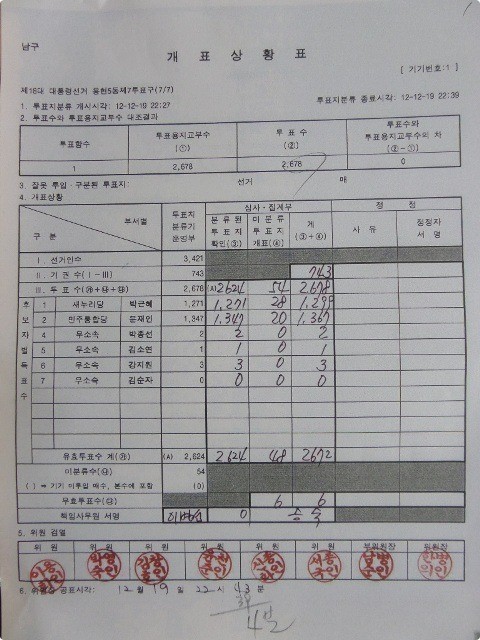 남구
개 표 상 황 표
[ 기기번호:1 ]
제18대 대통령선거 용현5동제7투표구(7/7)
1. 투표지분류 개시시각: 12-12-19 22:27 투표지분류 종료시각: 12-12-19 22:39
2. 투표수와 투표용지교부수 대조결과
투표함수 투표용지교부수 (①) 투 표 수 (②) 투표수와 투표용지교부수의 차 (②-①)
1 2,678 2,678 0
3. 잘못 투입·구분된 투표지: 선거 매
4. 개표상황
구 분 부서별 투표지 분류기 운영부 심사·집계부 정 정
분류된 투표지 확인(③) 미분류 투표지 개표(④) 계 (③+④) 사 유 정정자 서 명
Ⅰ. 선거인수 3,421
Ⅱ. 기 권 수(Ⅰ-Ⅲ) 743 743
Ⅲ. 투 표 수 2,678 (A) 2624 54 2678
후보자별득표수
1 새누리당 박근혜 1,271 1,271 28 1,299
2 민주통합당 문재인 1,347 1,347 20 1,367
4 무소속 박종선 2 2 0 2
5 무소속 김소연 1 1 0 1
6 무소속 강지원 3 3 0 3
7 무소속 김순자 0 0 0 0
유효투표수 계 (A) 2,624 2624 48 2672
미분류수 54
( ) ⇒ 기기 미투입 매수, 본수에 포함 (0)
무효투표수 6 6
책임사무원 서명 0
5. 위원 검열
위 원 위 원 위 원 위 원 위 원 위 원 부위원장 위 원 장
6. 위원장 공표시각: 12 월 19 일 22 시 43 분